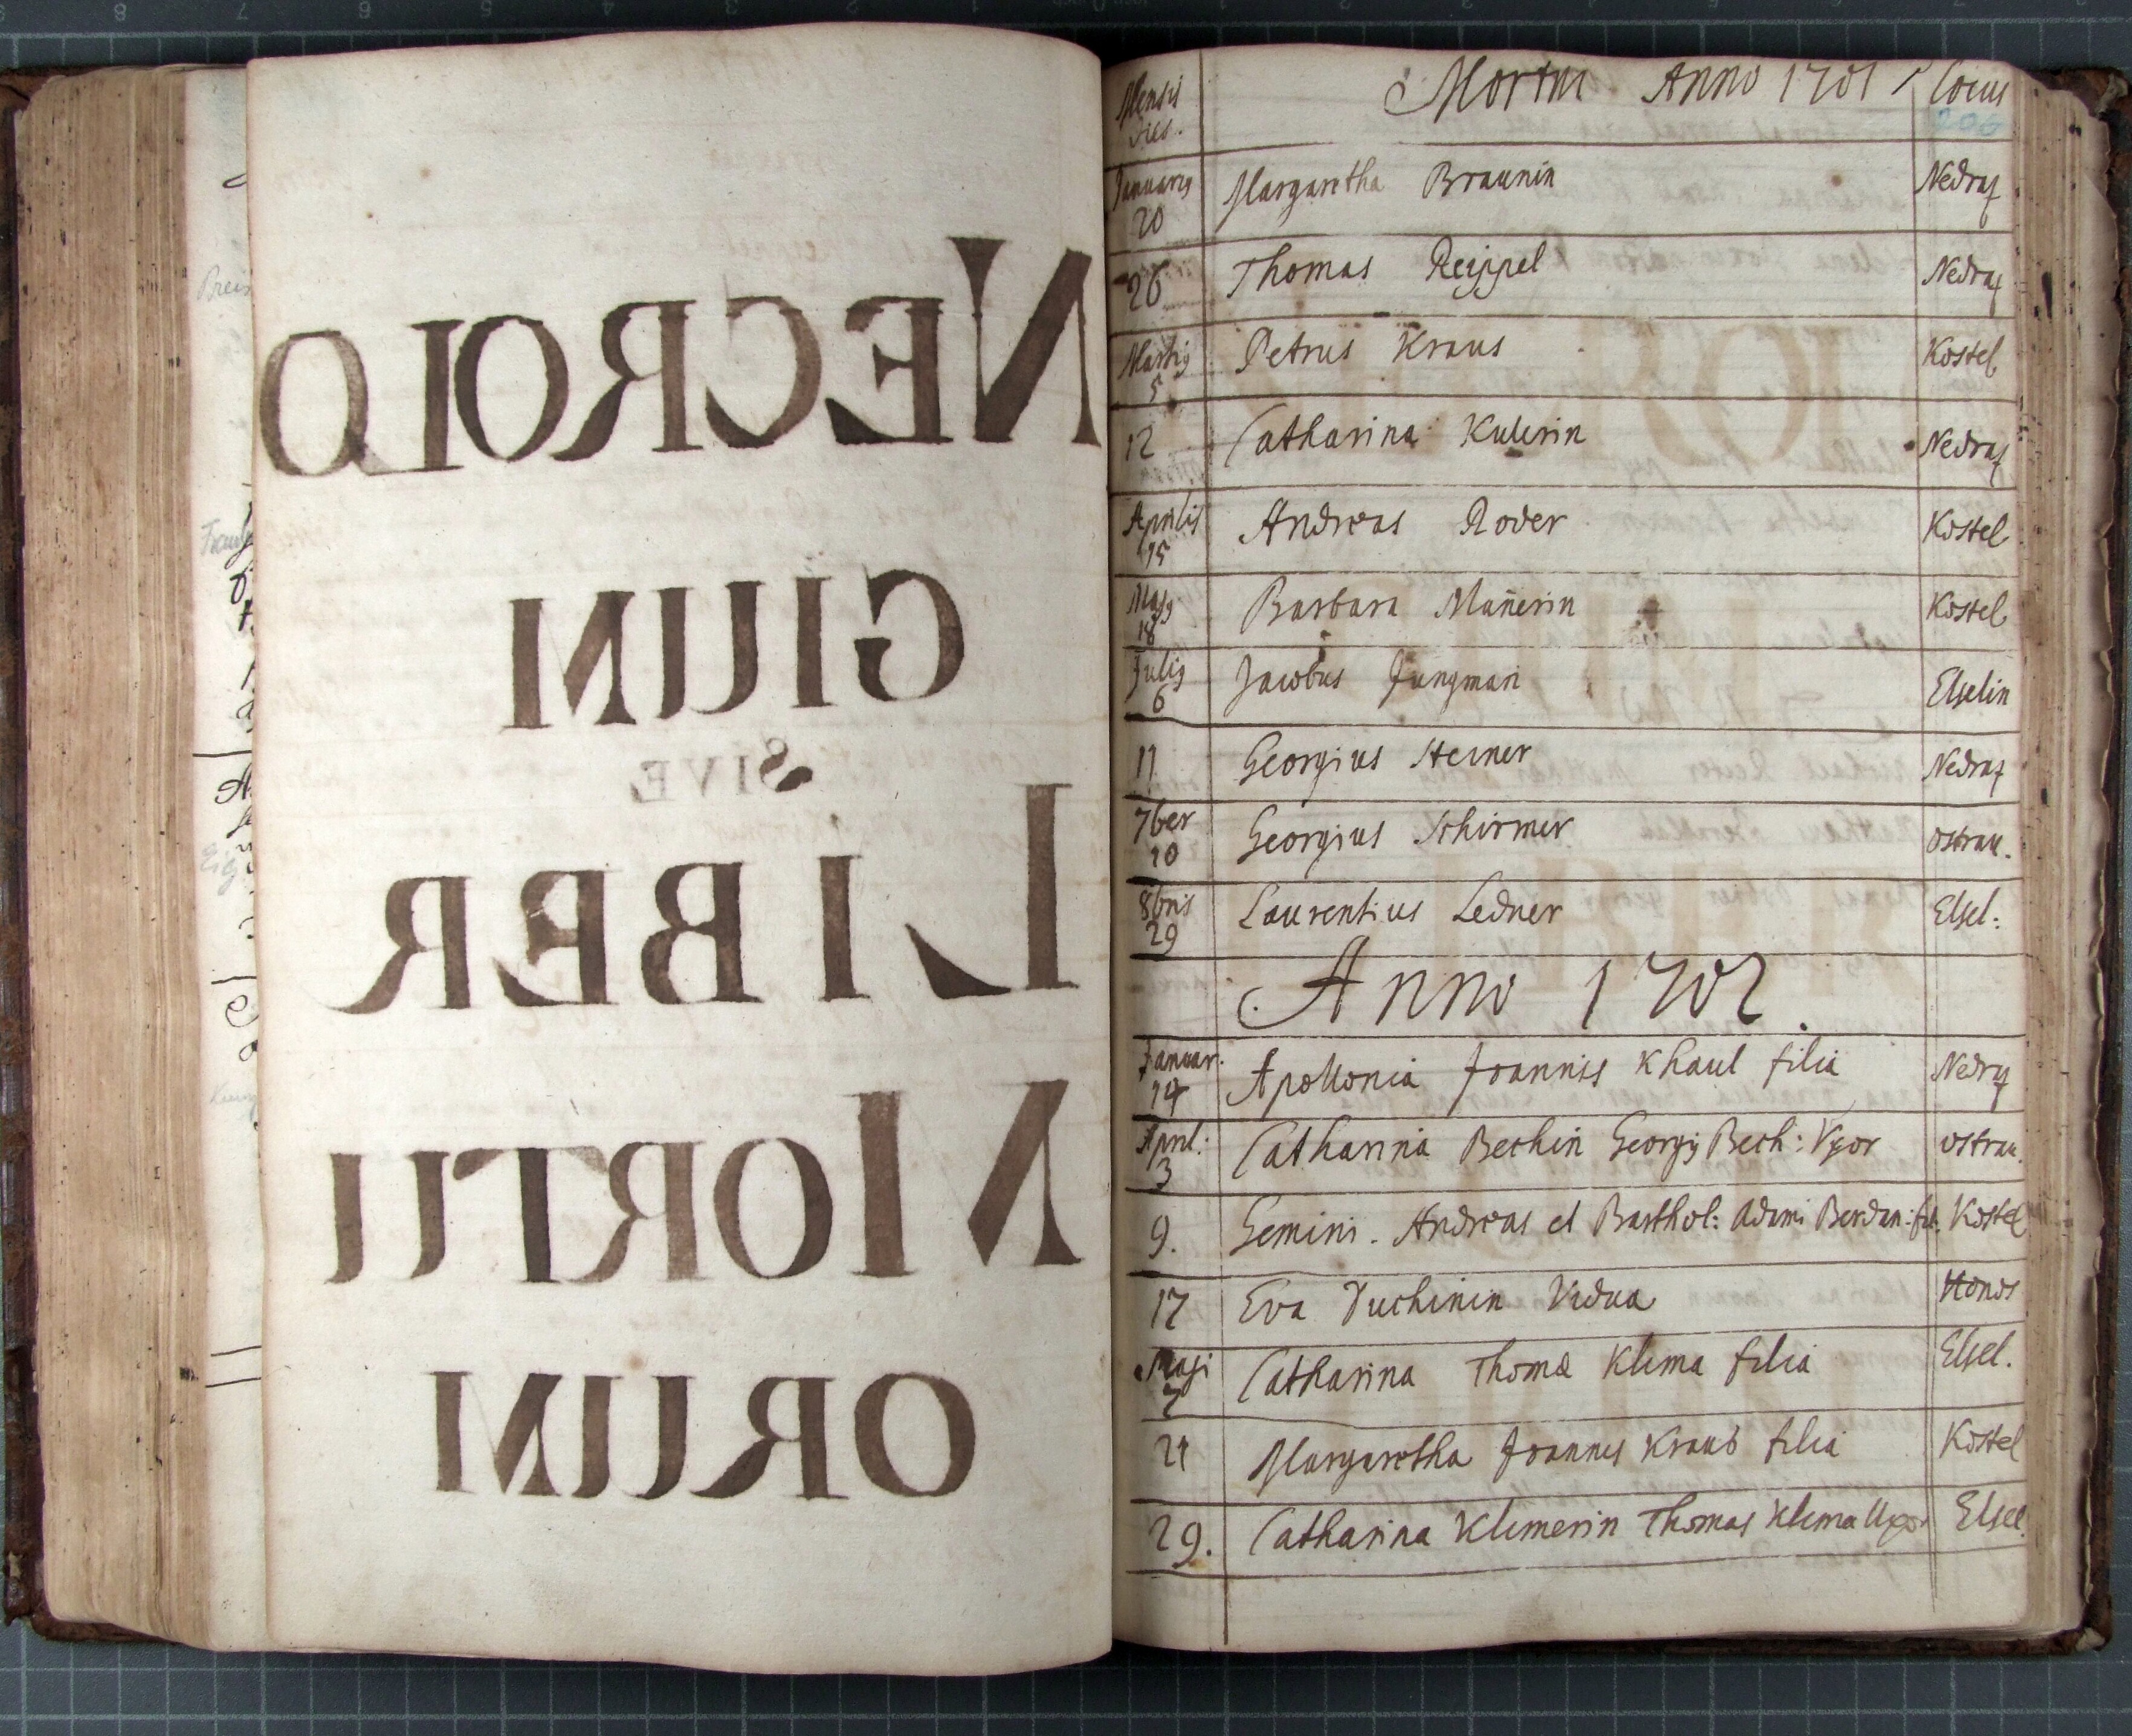 NECROLO
GIUM
SIVE
LIBER
MORTU
ORUM
Mensis Dies. Mortui Anno 1701 Locus
206
Januarij 20 Margaretha Braunin Nedras
26 Thomas Reippel Nedras
Martij 5 Petrus Kraus Kostel
12 Catharina Kulerin Nedras
Aprilis 15 Andreas Roder Kostel
Maij 18 Barbara Mañerin Kostel
Julij 6 Jacobus Jungman Elselin
11 Georgius Steiner Nedras
7ber 10 Georgius Schirmer Ostrau.
8bris 29 Laurentius Ledner Elsel:
Anno 1702.
Januar. 14 Apollonia Joannis Khaul filia Nedras
April: 3 Catharina Bechin Georgij Bech: Vxor Ostrau.
9. Gemini. Andreas et Barthol: Adami Berdan: fil. Kostel
17 Eva Puchinin Vidua
Maji 7 Catharina Thomæ Klima filia Elsel.
21 Margaretha Joannis Kraus filia Kostel
29. Catharina Klimerin Thomas Klima Uxor Elsel.